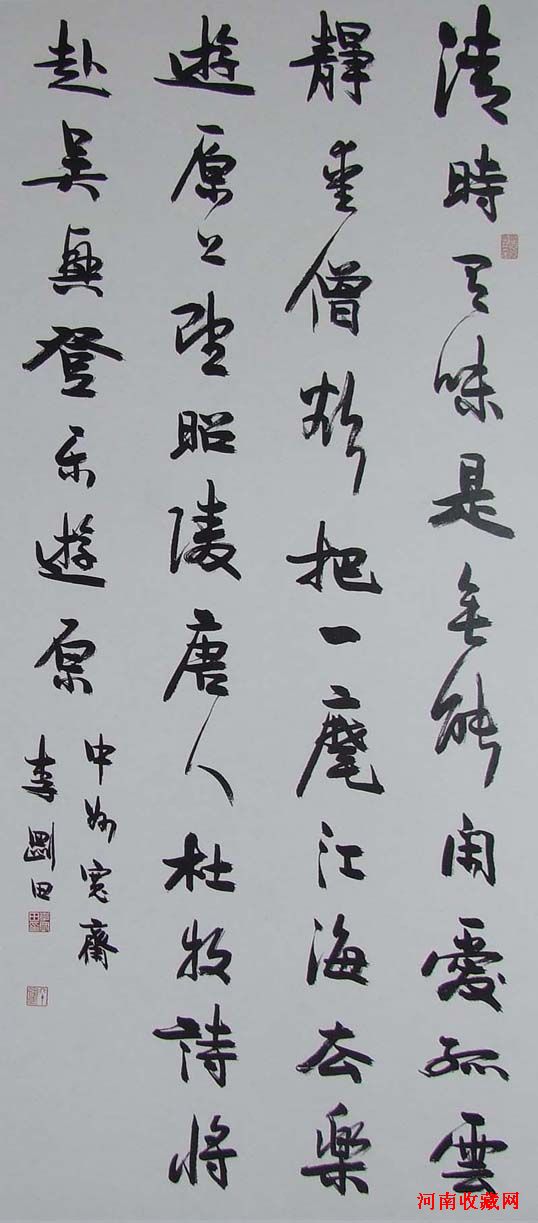 清時有味是無能閑愛孤雲
靜愛僧欲把一麾江海去樂
遊原上望昭陵唐人杜牧詩將
赴吳興登乐遊原
中州寬齋
李剛田
河南收藏网